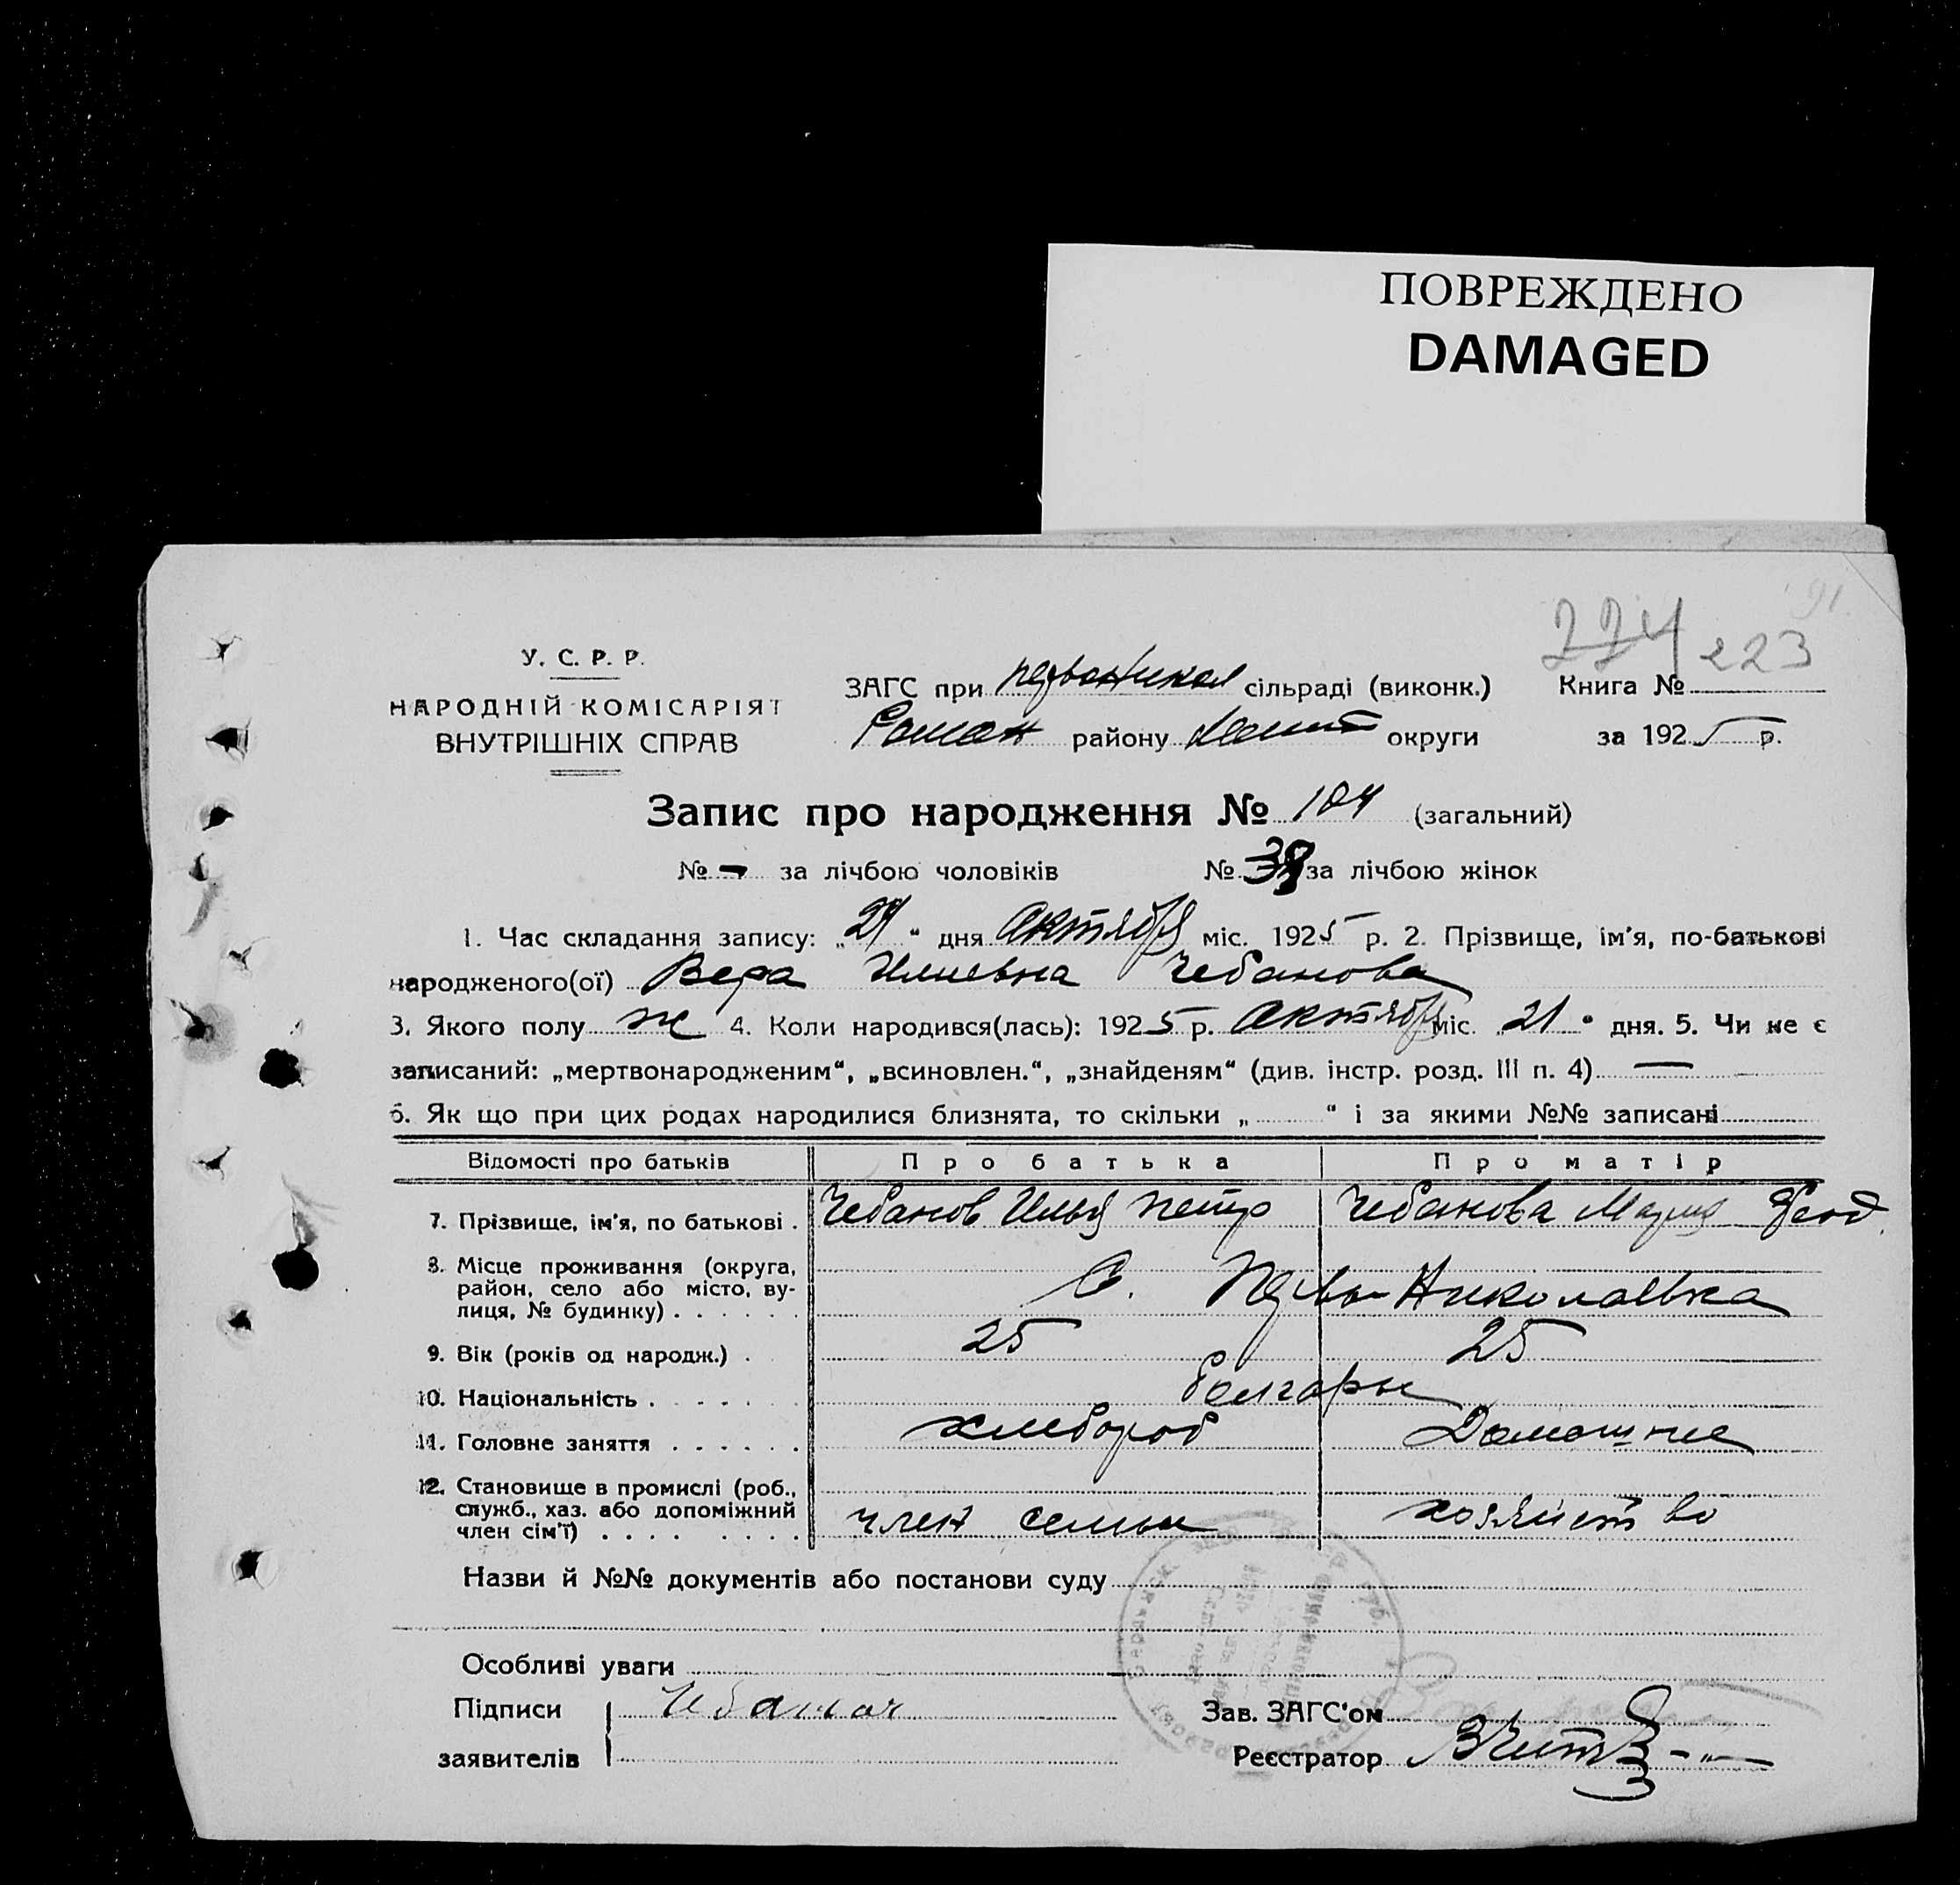 ПОВРЕЖДЕНО
DAMAGED
91
224 223
У. С. Р. Р.
НАРОДНІЙ КОМІСАРІЯТ
ВНУТРІШНІХ СПРАВ
ЗАГС при сільраді (виконк.) Книга №
Роман району Мелит округи за 1925 р.
Запис про народження № 104 (загальний)
№ - за лічбою чоловіків № 38 за лічбою жінок
1. Час складання запису: „ “ дня Октября міс. 1925 р. 2. Прізвище, ім'я, по-батькові
народженого(ої) Вера Илиевна Чебанова
3. Якого полу ж 4. Коли народився(лась): 1925 р. Октября міс. „21“ дня. 5. Чи не є
записаний: „мертвонародженим“, „всиновлен.“, „знайденям“ (див. інстр. розд. III п. 4) —
6. Як що при цих родах народилися близнята, то скільки „ “ і за якими №№ записані
Відомості про батьків Про батька Про матір
7. Прізвище, ім'я, по батькові . Чебанов Илья Петр Чебанова Мария Феод
8. Місце проживання (округа,
район, село або місто, ву-
лиця, № будинку) . . . . . . С. Николаевка
9. Вік (років од народж.) . 25 25
10. Національність . . . . . . болгары
11. Головне заняття . . . . . . хлебороб Домашнее
12. Становище в промислі (роб.,
служб., хаз. або допоміжний
член сім'ї) . . . . . . . . член семьи хозяйство
Назви й №№ документів або постанови суду
Особливі уваги
Підписи
заявителів
Зав. ЗАГС'ом
Реєстратор